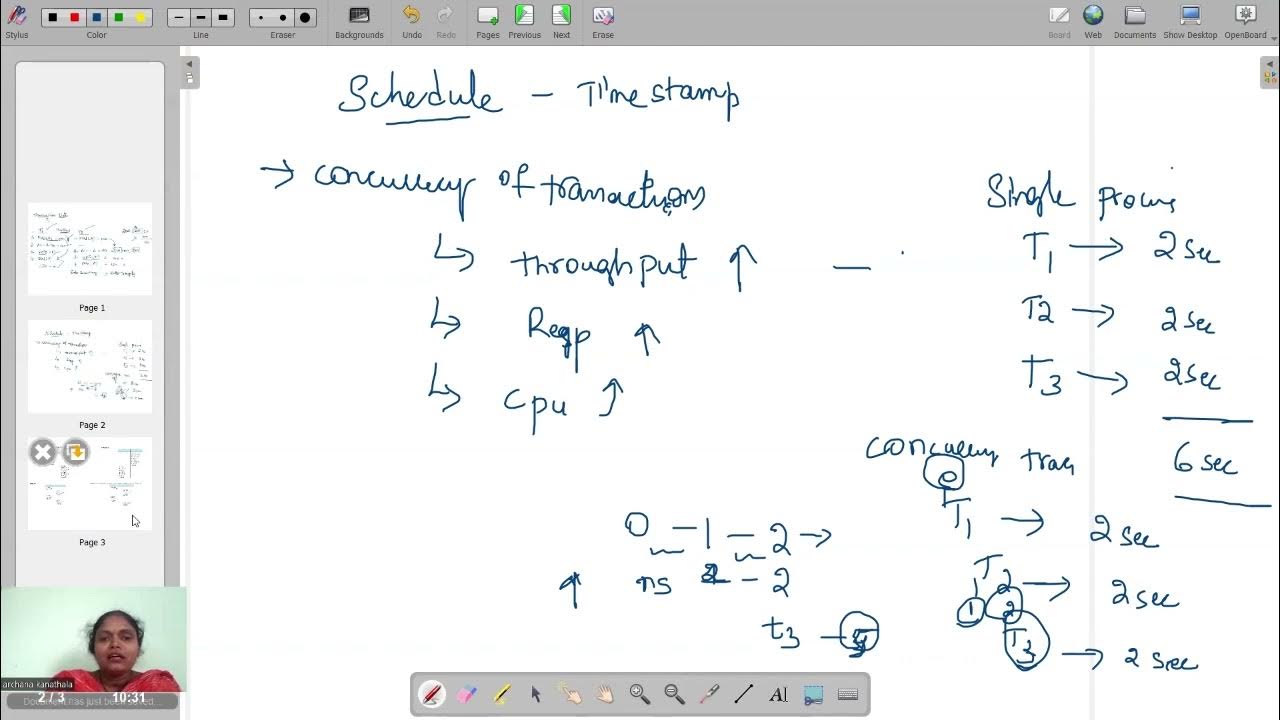 Stylus
Color
Line
Eraser
Backgrounds
Undo
Redo
Pages
Previous
Next
Erase
Board
Web
Documents
Show Desktop
OpenBoard
Schedule - Timestamp
→ concurrency of transactions
↳ throughput ↑ —
↳ ↑
↳ cpu ↑
Single
T1 → 2 sec
T2 → 2 sec
T3 → 2 sec
6 sec
tran
0
T1 → 2 sec
T2 → 2 sec
1 2
T3 → 2 sec
0 - 1 - 2 →
↑ ns - 2
t3 -
Page 1
Page 2
Page 3
archana kanathala
2 / 3 10:31
Document has just been saved...